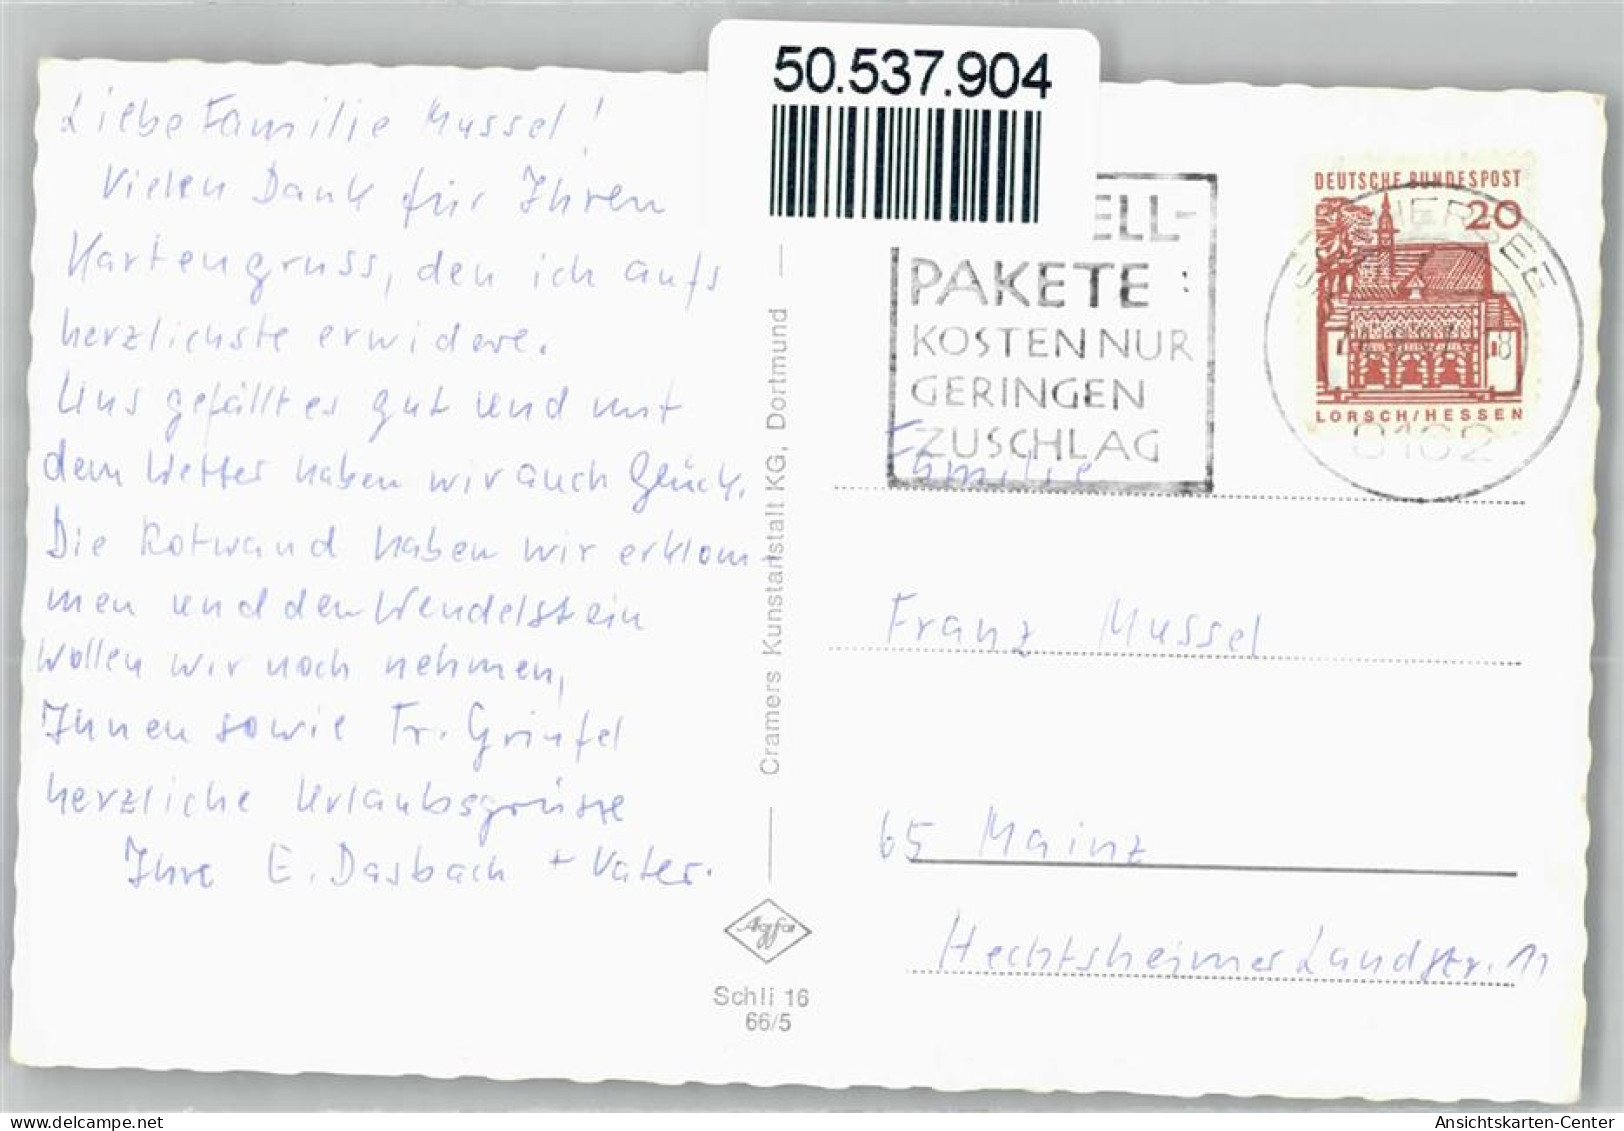 50.537.904
Liebe Familie Mussel!
Vielen Dank für Ihren
Kartengruss, den ich aufs
herzlichste erwidere.
Uns gefällt es gut und mit
dem Wetter haben wir auch Glück.
Die Rotwand haben wir erklom-
men und den Wendelstein
wollen wir noch nehmen,
Ihnen sowie Fr. Grünfel
herzliche Urlaubsgrüsse
Ihre E. Dasbach + Vater.
Cramers Kunstanstalt KG, Dortmund
Agfa
Schli 16
66/5
ELL-
PAKETE
KOSTEN NUR
GERINGEN
ZUSCHLAG
DEUTSCHE BUNDESPOST
20
LORSCH/HESSEN
8162
Familie
Franz Mussel
65 Mainz
Hechtsheimer Landstr. 11
Ansichtskarten-Center